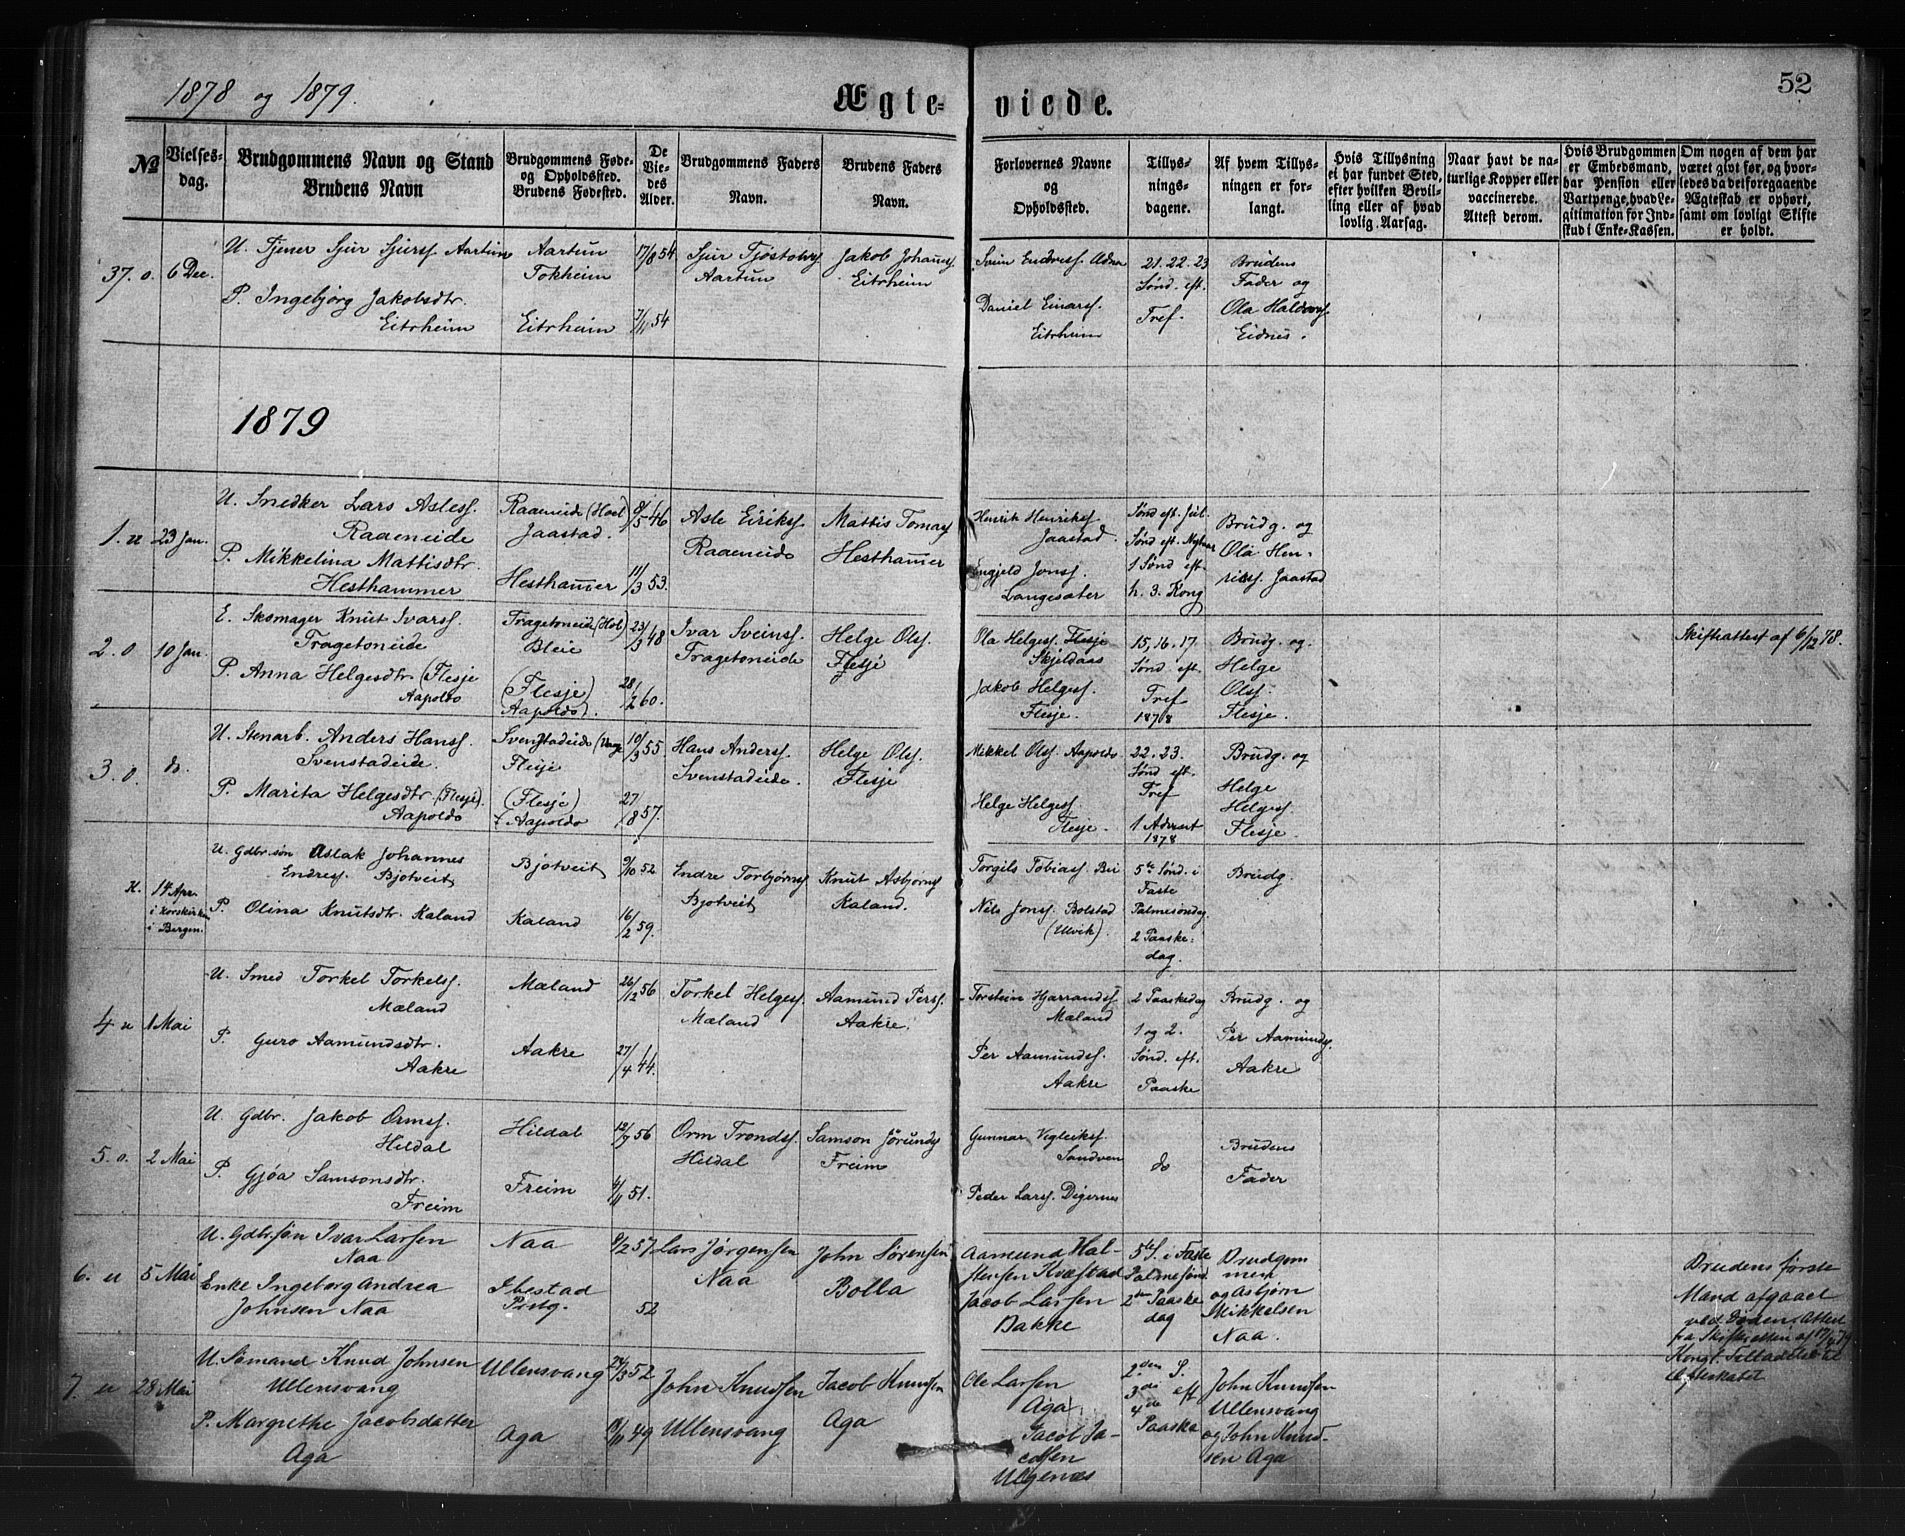 1878 og 1879.
Ægteviede.
52
No
Vielsesdag.
Brudgommens Navn og Stand
Brudens Navn
Brudgommens Føde- og Opholdssted.
Brudens Fødested.
De Viedes Alder.
Brudgommens Faders Navn.
Brudens Faders Navn.
Forlovernes Navne og Opholdssted.
Tillysningsdagene.
Af hvem Tillysningen er forlangt.
Hvis Tillysning ei har fundet Sted, efter hvilken Bevilling eller af hvad lovlig Aarsag.
Naar havt de naturlige Kopper eller vaccinerede. Attest derom.
Hvis Brudgommen er Embedsmand, har Pension eller Vartpenge, hvad Legitimation for Indskud i Enke-Kassen.
Om nogen af dem har været givt før, og hvorledes da det foregaaende Ægteskab er ophørt, samt om lovligt Skifte er holdt.
37. o. 6 Dec.
U. Tjener Sjur Sjurss. Aartun
P. Ingebjørg Jakobsdtr.
Eitrheim
Aartun
Tokheim
Eitrheim
17/8 54
7/11 54
Sjur Tjøstolvs.
Aartun
Jakob Johanness.
Eitrheim
Svein Endress. Adna
Daniel Einarss.
Eitrheim
21. 22. 23
Sønd. eft.
Tref.
Brudens
Fader og
Ola Haldorss.
Eidnes.
1879
1. u 23 Jan.
U. Snedker Lars Asless.
Raaeneide
P. Mikkelina Mattisdtr.
Hesthammer
Raaeneide (Hoel
Jaastad.
Hesthammer
9/5 46
11/3 53.
Asle Eirikss.
Raaeneide
Mattis Tomass
Hesthammer
Henrik Henrikss.
Jaastad.
Engjeld Jonss.
Langesæter
Sønd eft. Jul.
Sønd eft. Nytaar
1 Sønd eft.
h. 3. Kong
Brudg. og
Ola Hen-
rikss. Jaastad
2. o 10 Jan.
E. Skomager Knut Ivarss.
Tragetoneide
P. Anna Helgesdtr. (Flesje
Aapoldo
Tragetoneide (Hol)
Bleie
(Flesje)
Aapoldo.
23/3 48
28/2 60.
Ivar Sveinss.
Tragetoneide
Helge Olss.
Flesje
Ola Helgess. Flesje
Skjeldaas
Jakob Helgess.
Flesje.
15, 16. 17.
Sønd. eft.
Tref
1878
Brudg. og.
Helge
Olss.
Flesje.
Skifteattest af 6/12 78.
3. o. do.
U. Stenarb. Anders Hanss.
Svenstadeide.
P. Marita Helgesdtr. (Flesje).
Aapoldo
Svenstadeide
Flesje
(Flesje)
Aapoldo
10/3 55
27/8 57.
Hans Anderss.
Svenstadeide.
Helge Olss.
Flesje
Mikkel Olss. Aapoldo
Helge Helgess.
Flesje.
22. 23.
Sønd eft.
Tref
1 Advent
1878
Brudg. og
Helge
Helgess.
Flesje.
K. 14 Apr.
i Korskirken
i Bergen.
U. Gdbr.søn Aslak Johannes
Endress. Bjotveit
P. Olina Knutsdtr. Kaland
Bjotveit
Kaland
9/10 52
16/2 59.
Endre Torbjørns.
Bjotveit
Knut Asbjørns.
Kaland.
Torgils Tobiass. Bu
Nils Jonss. Bolstad
(Ulvik).
5te Sønd. i
Faste
Palmesøndag
2 Paaske-
dag.
Brudg.
4 u 1 Mai
U. Smed Torkel Torkelss.
Mæland
P. Guro Aamundsdtr.
Aakre
Mæland
Aakre
26/12 56
27/4 44.
Torkel Helgess.
Mæland
Aamund Perss.
Aakre.
Torstein Hjarrandss.
Mæland
Per Aamundss.
Aakre
2 Paaskedag
1 og 2.
Sønd. eft.
Paaske
Brudg. og
Per Aamundss.
Aakre
5. o. 2 Mai
U. Gdbr. Jakob Ormss.
Hildal
P. Gjøa Samsonsdtr.
Freim
Hildal
Freim
12/9 56
4/11 51.
Orm Trondss.
Hildal
Samson Jørunds
Freim
Gunnar Vigleikss.
Sandven
Peder Larss. Digernes
do
Brudens
Fader
6. u 5 Mai
U. Gdbrsøn Ivar Larsen
Naa
Enke Ingeborg Andrea
Johnsen Naa
Naa
Ibestad
Prstg.
9/2 57
52
Lars Jørgensen
Naa
John Sørensen
Bolla
Aamund Hal-
stensen Kvæstad
Jacob Larsen
Bakke
5te S. i Faste
Palmesønd.
2den Paaske
dag
Brudgom
men
og Asbjørn
Mikkelsen
Naa.
Brudens første
Mand afgaaet
ved Døden. Attest
fra Skifteretten af 17/4 79
Kongl. Tilladelse til
Ægteskabet
7. u 28 Mai
U. Sømand Knud Johnsen
Ullensvang
P. Margrethe Jacobsdatter
Aga
Ullensvang
Aga
24/3 52
49
John Knudsen
Ullensvang
Jacob Knudsen
Aga
Ole Larsen
Aga
Jacob Ja-
cobsen
Ulgenæs
2den S.
3die eft
4de
Paaske
John Knudsen
Ullensvang
og John Knud-
sen Aga